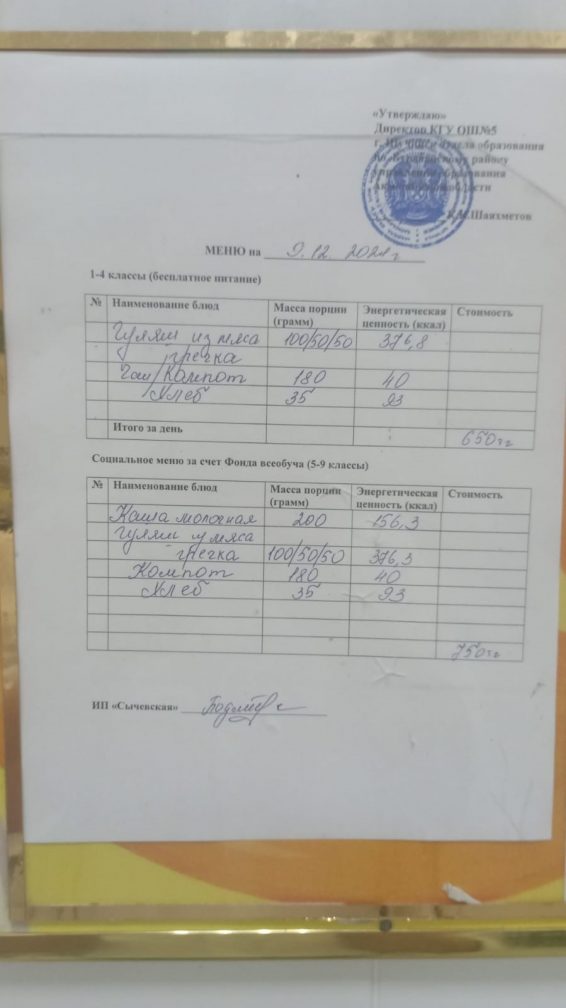 «Утверждаю»
Директор КГУ ОШ№5
отдела образования
району
образования
области
Шаяхметов
МЕНЮ на 9.12.2024г
1-4 классы (бесплатное питание)
№ Наименование блюд Масса порции (грамм) Энергетическая ценность (ккал) Стоимость
Гуляш из мяса 100/50/50 376,8
гречка
Чай/Компот 180 40
Хлеб 35 93
Итого за день 650тг
Социальное меню за счет Фонда всеобуча (5-9 классы)
№ Наименование блюд Масса порции (грамм) Энергетическая ценность (ккал) Стоимость
Каша молочная 200 156,3
Гуляш мяса
гречка 100/50/50 376,3
Компот 180 40
Хлеб 35 93
750тг
ИП «Сычевская»